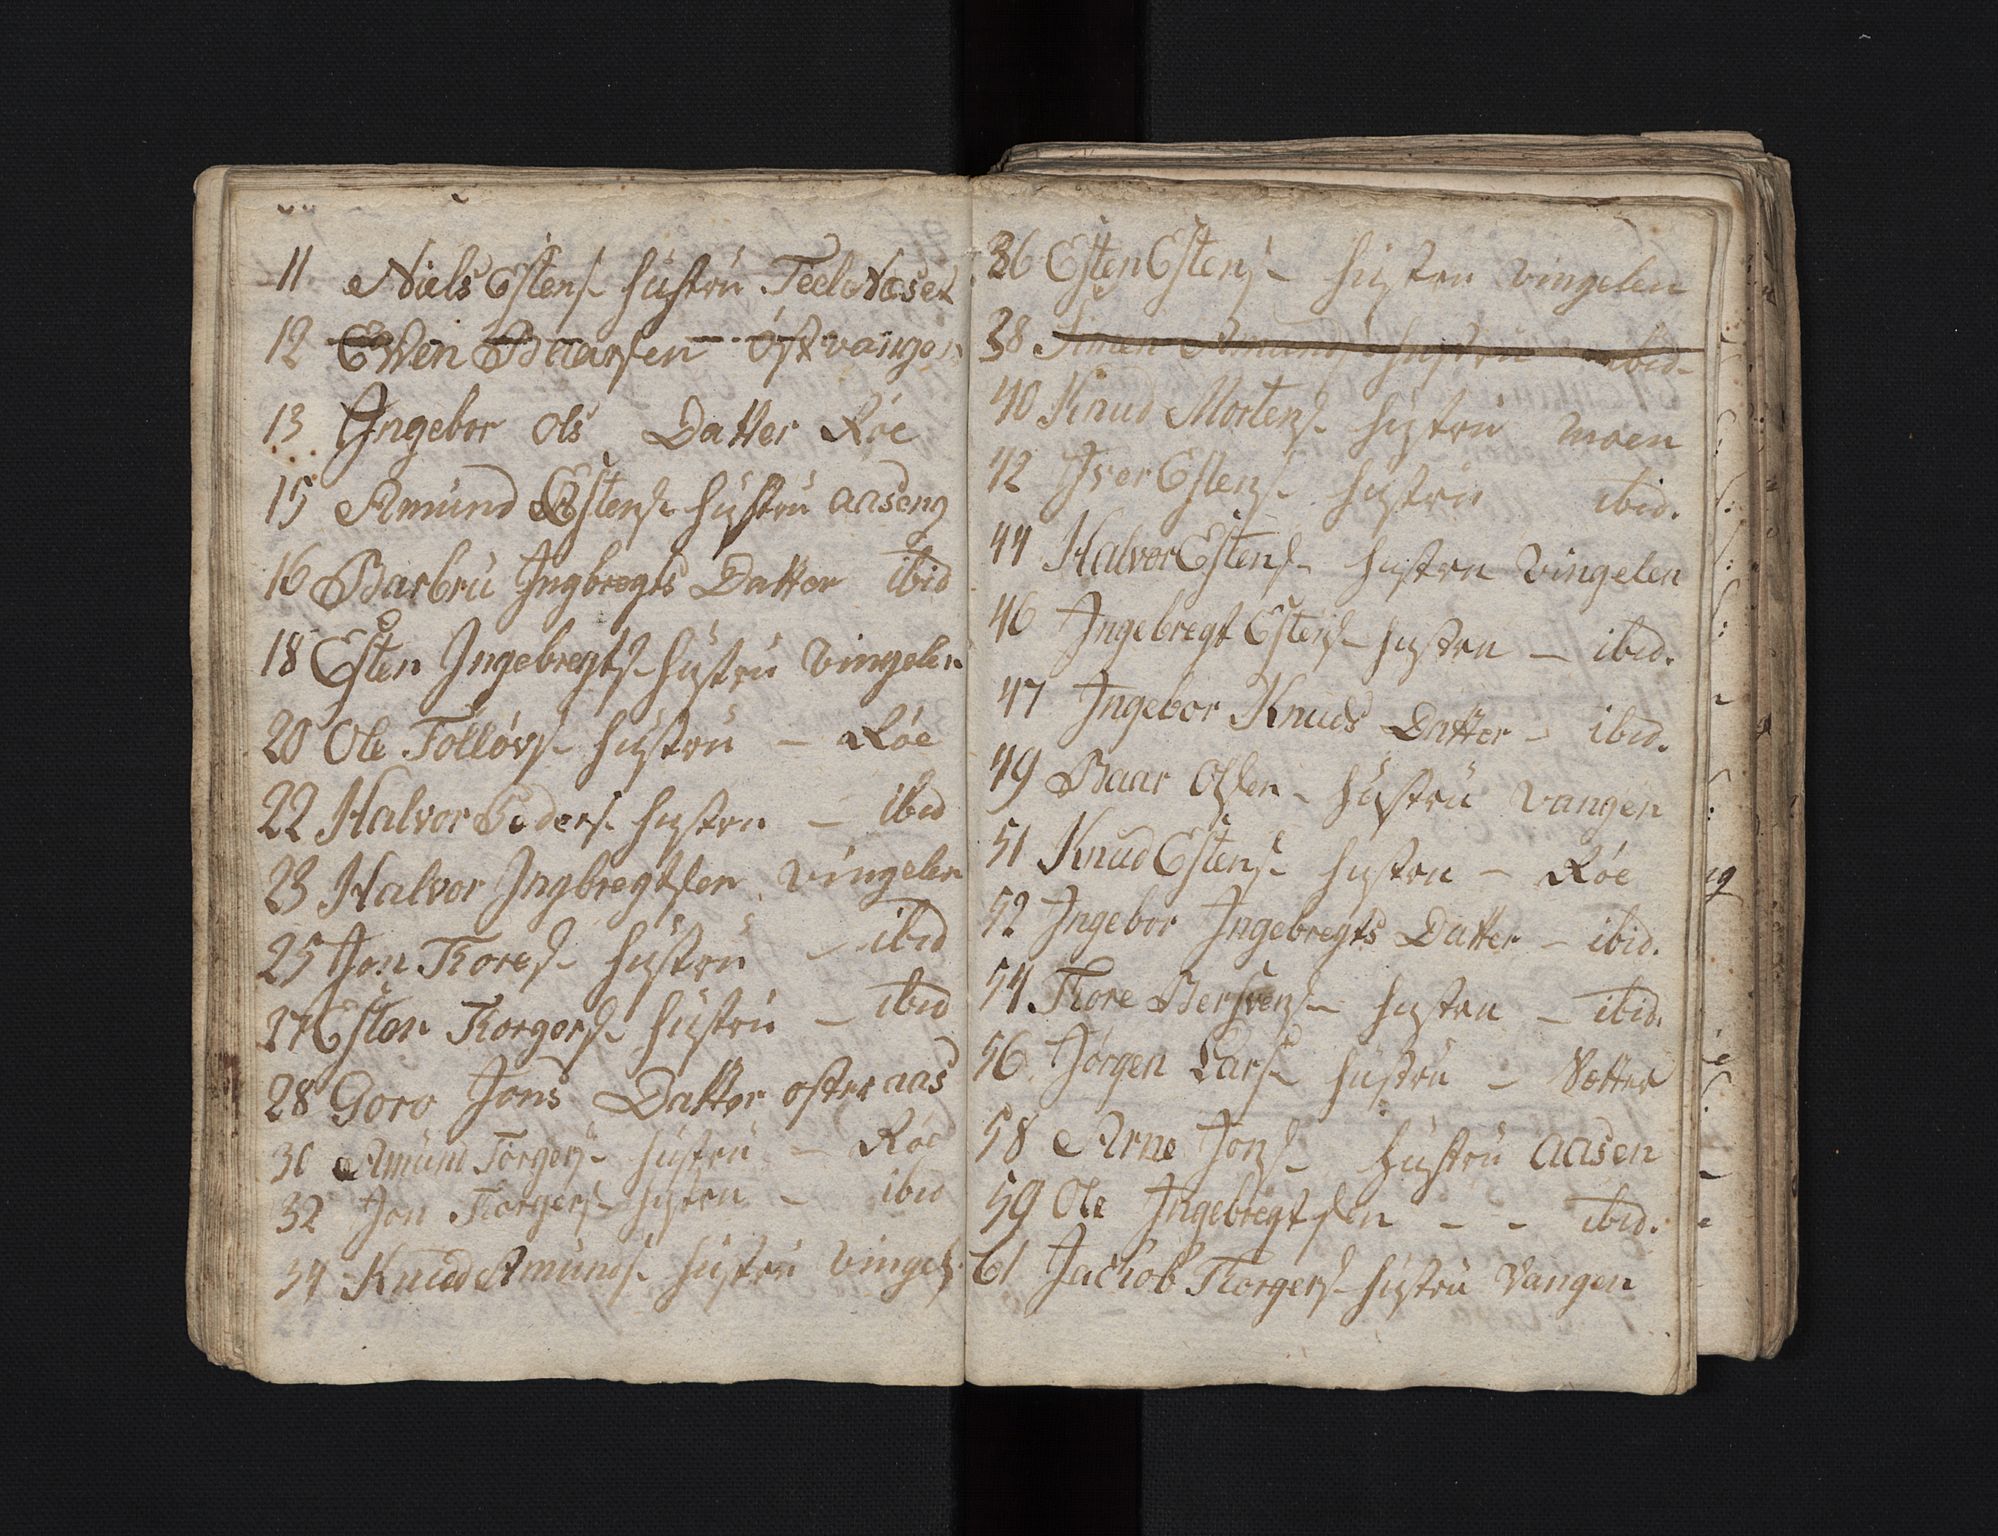 11 Niels Estens. hustru TeeloNæset
12 Ewen Baarsen Østvangen
13 Ingebor Ols Datter Røe
15 Amund Estens. hustru aaseng
16 Barbru Ingbregts Datter ibid
18 Esten Ingebregts. hustru Vingelen
20 Ole Folløvs. hustru – Røe
22 Halvor Peders. hustru – ibid
23 Halvor Ingbregtsen Vingelen
25 Jon Tores. hustru – ibid
27 Esten Torgers. hustru – ibid
28 Goro Jons Datter øster aas
30 Amund Torgers. hustru – Røe
32 Jon Torgers. hustru – ibid
34 Knud Amunds. hustru Vingel.
36 Esten Estens. hustru Vingelen
38 Simen Amunds. hustru ibid.
40 Knud Mortens. hustru moen
42 Iver Estens. hustru ibid.
44 Halvor Estens. hustru Vingelen
46 Ingebregt Estens. hustru – ibid.
47 Ingebor Knuds Datter – ibid.
49 Baar Olsen – hustru Vangen
51 Knud Estens. hustru – Røe
52 Ingebor Ingebregts Datter – ibid.
54 Tore Bersvens. hustru – ibid.
56 Jørgen Lars. hustru – Vætter
58 Arne Jons. hustru aasen
59 Ole Ingebregtsen – – ibid.
61 Jachob Torgers. hustru Vangen